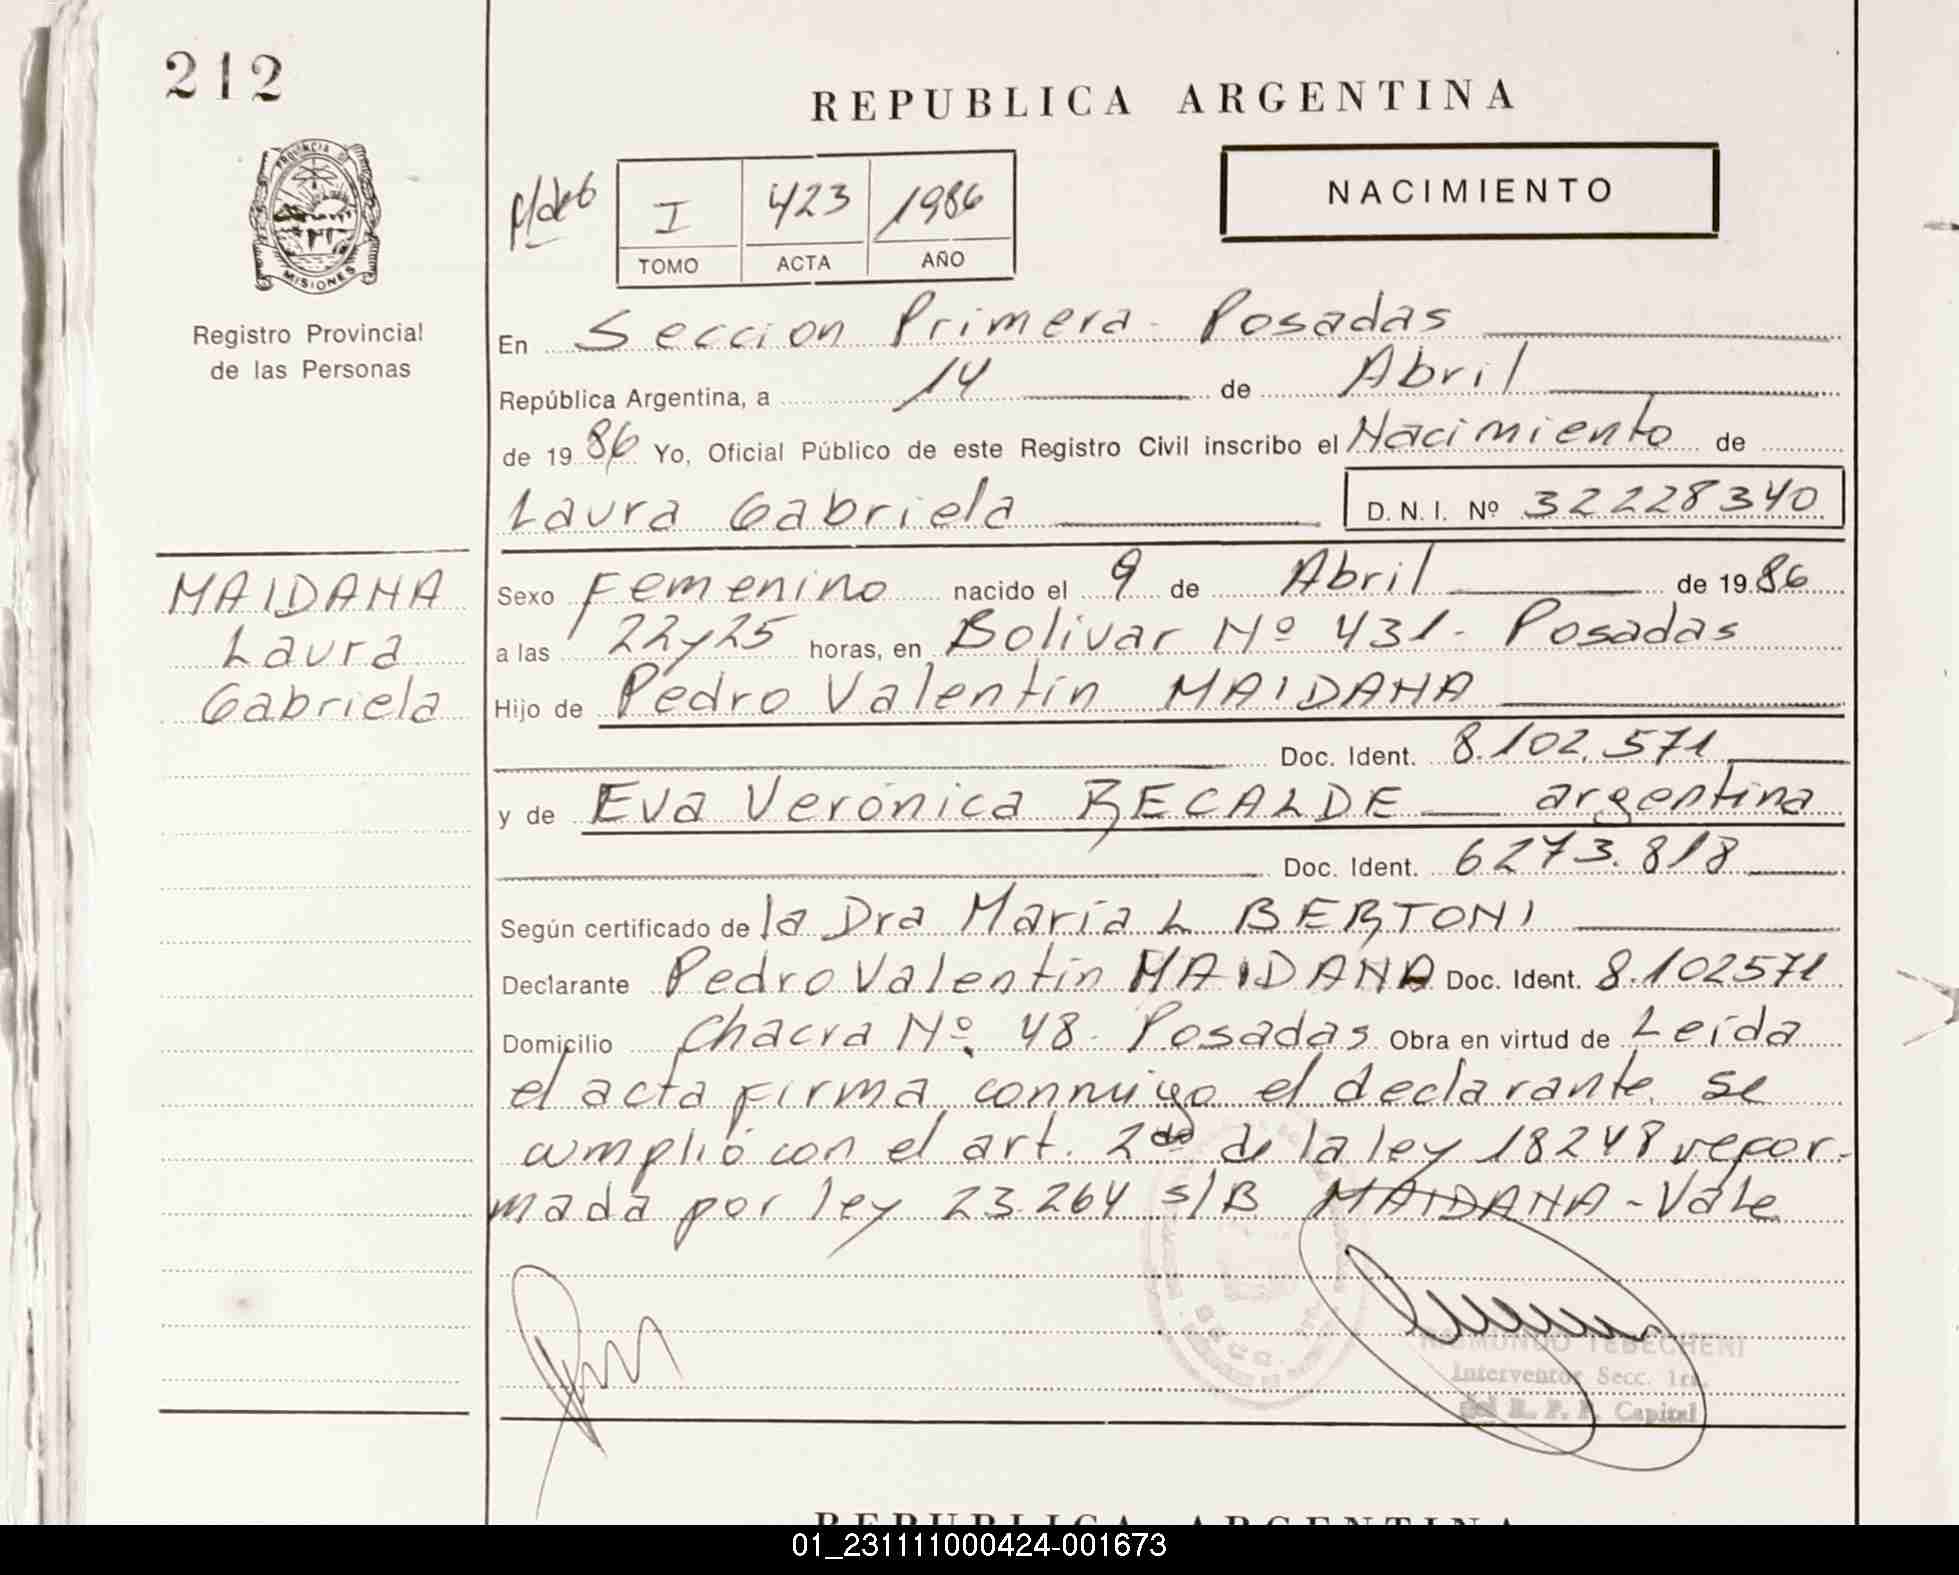 212
REPUBLICA ARGENTINA
PROVINCIA DE
MISIONES
Registro Provincial
de las Personas
I 423 1986
TOMO ACTA AÑO
NACIMIENTO
En Seccion Primera - Posadas
República Argentina, a 14 de Abril
de 1986 Yo, Oficial Público de este Registro Civil inscribo el Nacimiento de
Laura Gabriela D. N. I. Nº 32228340
MAIDANA
Laura
Gabriela
Sexo Femenino nacido el 9 de Abril de 1986
a las 22y25 horas, en Bolivar Nº 431 - Posadas
Hijo de Pedro Valentín MAIDANA
Doc. Ident. 8.102.571
y de Eva Verónica RECALDE argentina
Doc. Ident. 6273.818
Según certificado de la Dra María L BERTONI
Declarante Pedro Valentín MAIDANA Doc. Ident. 8.102571
Domicilio Chacra Nº 48 - Posadas Obra en virtud de Leída
el acta firma conmigo el declarante. se
cumplió con el art. 2do de la ley 18248 refor-
mada por ley 23.264 s/B MAIDANA - Vale
RAIMUNDO TEBECHERI
Interventor Secc. 1ra.
del R. P. P. Capital
REPUBLICA ARGENTINA
01_231111000424-001673